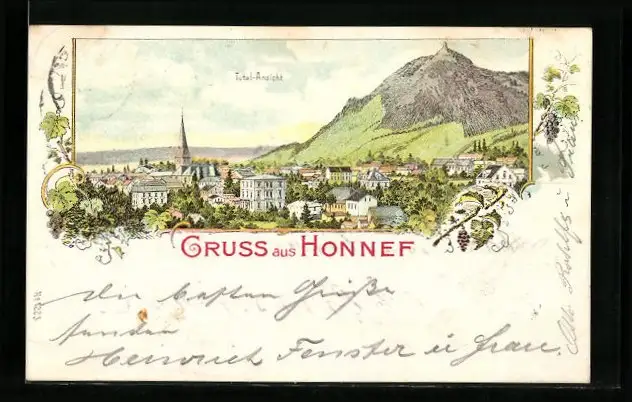 Total-Ansicht
GRUSS aus HONNEF
Die besten Grüße
senden
Heinrich Fenster u Frau.